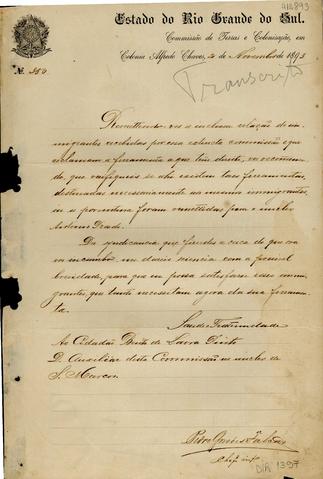 414893
Estado do Rio Grande do Sul.
Commissão de Terras e Colonisação, em
Colonia Alfredo Chaves, 20 de Novembro de 1893
N. 350
Transcripto
Remettendo-vos a inclusa relação de im-
migrantes recebidos por essa extincta commissão e que
reclamam a ferramenta a que têm direito, vos recommen-
do que verifiqueis se ahi existem taes ferramentas,
destinadas necessariamente ao mesmo immigrantes
ou se porventura foram remettidas para o nucleo
Antonio Prado.
Da syndicancia que fizerdes a cerca do que ora
vos incumbo, me dareis sciencia com a possivel
brevidade, para que eu possa satisfazer esses immi-
grantes, que tanto necessitam agora da sua ferramen-
ta.
Saude e Fraternidade
Ao Cidadão Bento de Lavra Pinto
D. Auxiliar desta Commissão no nucleo de
S. Marcos
Chefe intº
DIA 1397